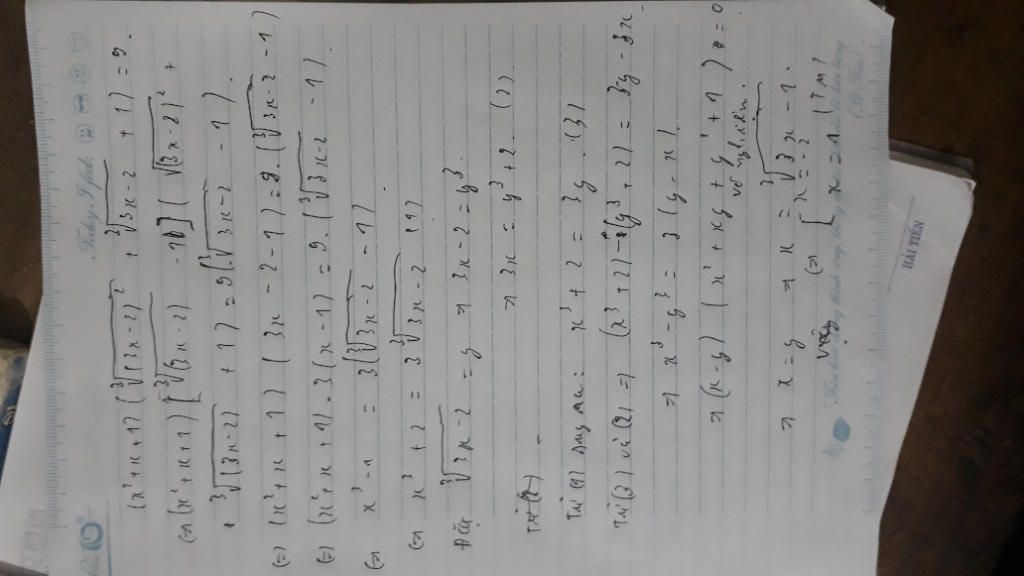 Today I feel:
(x² + x + 1)(∛(3x-2)² + ∛3x-2 + 1) = 9.
(=) (x² + x + 1)[∛(3x-2) - 1](∛(3x-2)² +
+ ∛(3x-2) + 1) = 9(∛3x-2 - 1).
(=) (x² + x + 1)(3x - 2 - 1) = 9.(∛3x-2 - 1)
(=) (x² + x + 1).3(x - 1) = 9.(∛3x-2 - 1)
(=) x³ - 1 = 3(∛3x-2 - 1)
(=) x³ + 2 = 3∛3x-2 (1)
Đặt ∛3x-2 = y => 3x - 2 = y³.
=> 3x = y³ + 2. (2)
Từ (1) suy ra: x³ + 2 = 3y. (3)
Từ (3) và (2) => (x³ + 2) - (y³ + 2) = 3y - 3x.
=> x³ - y³ = 3(y - x)
=> (x - y)(x² + xy + y² + 1) = 0
vô nghiệm.
=> x = y => x = ∛3x - 1.
(=) [ x = -2
x = 1 (TM)
Vậy
HẢI TIẾN